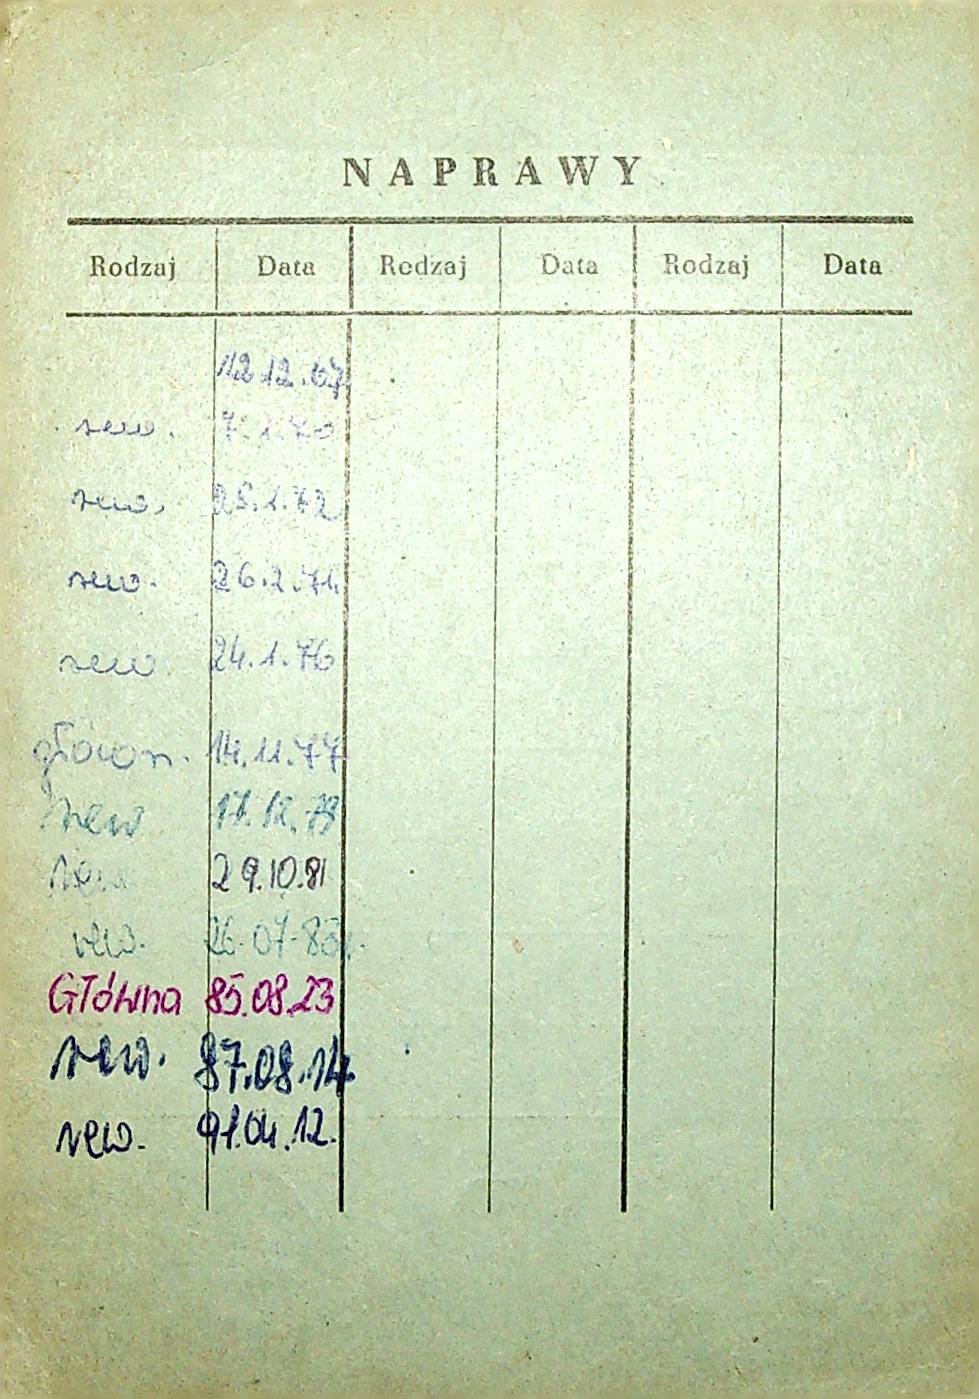 NAPRAWY
Rodzaj Data Rodzaj Data Rodzaj Data
12.12.67
rew. 7.1.70
rew. 28.1.72
rew. 26.2.74.
rew 24.1.76
główn. 14.11.77
rew 17.12.79
rew 29.10.81
rew. 26-07-83r.
Główna 85.08.23
rew. 87.08.14.
rew. 91.04.12.